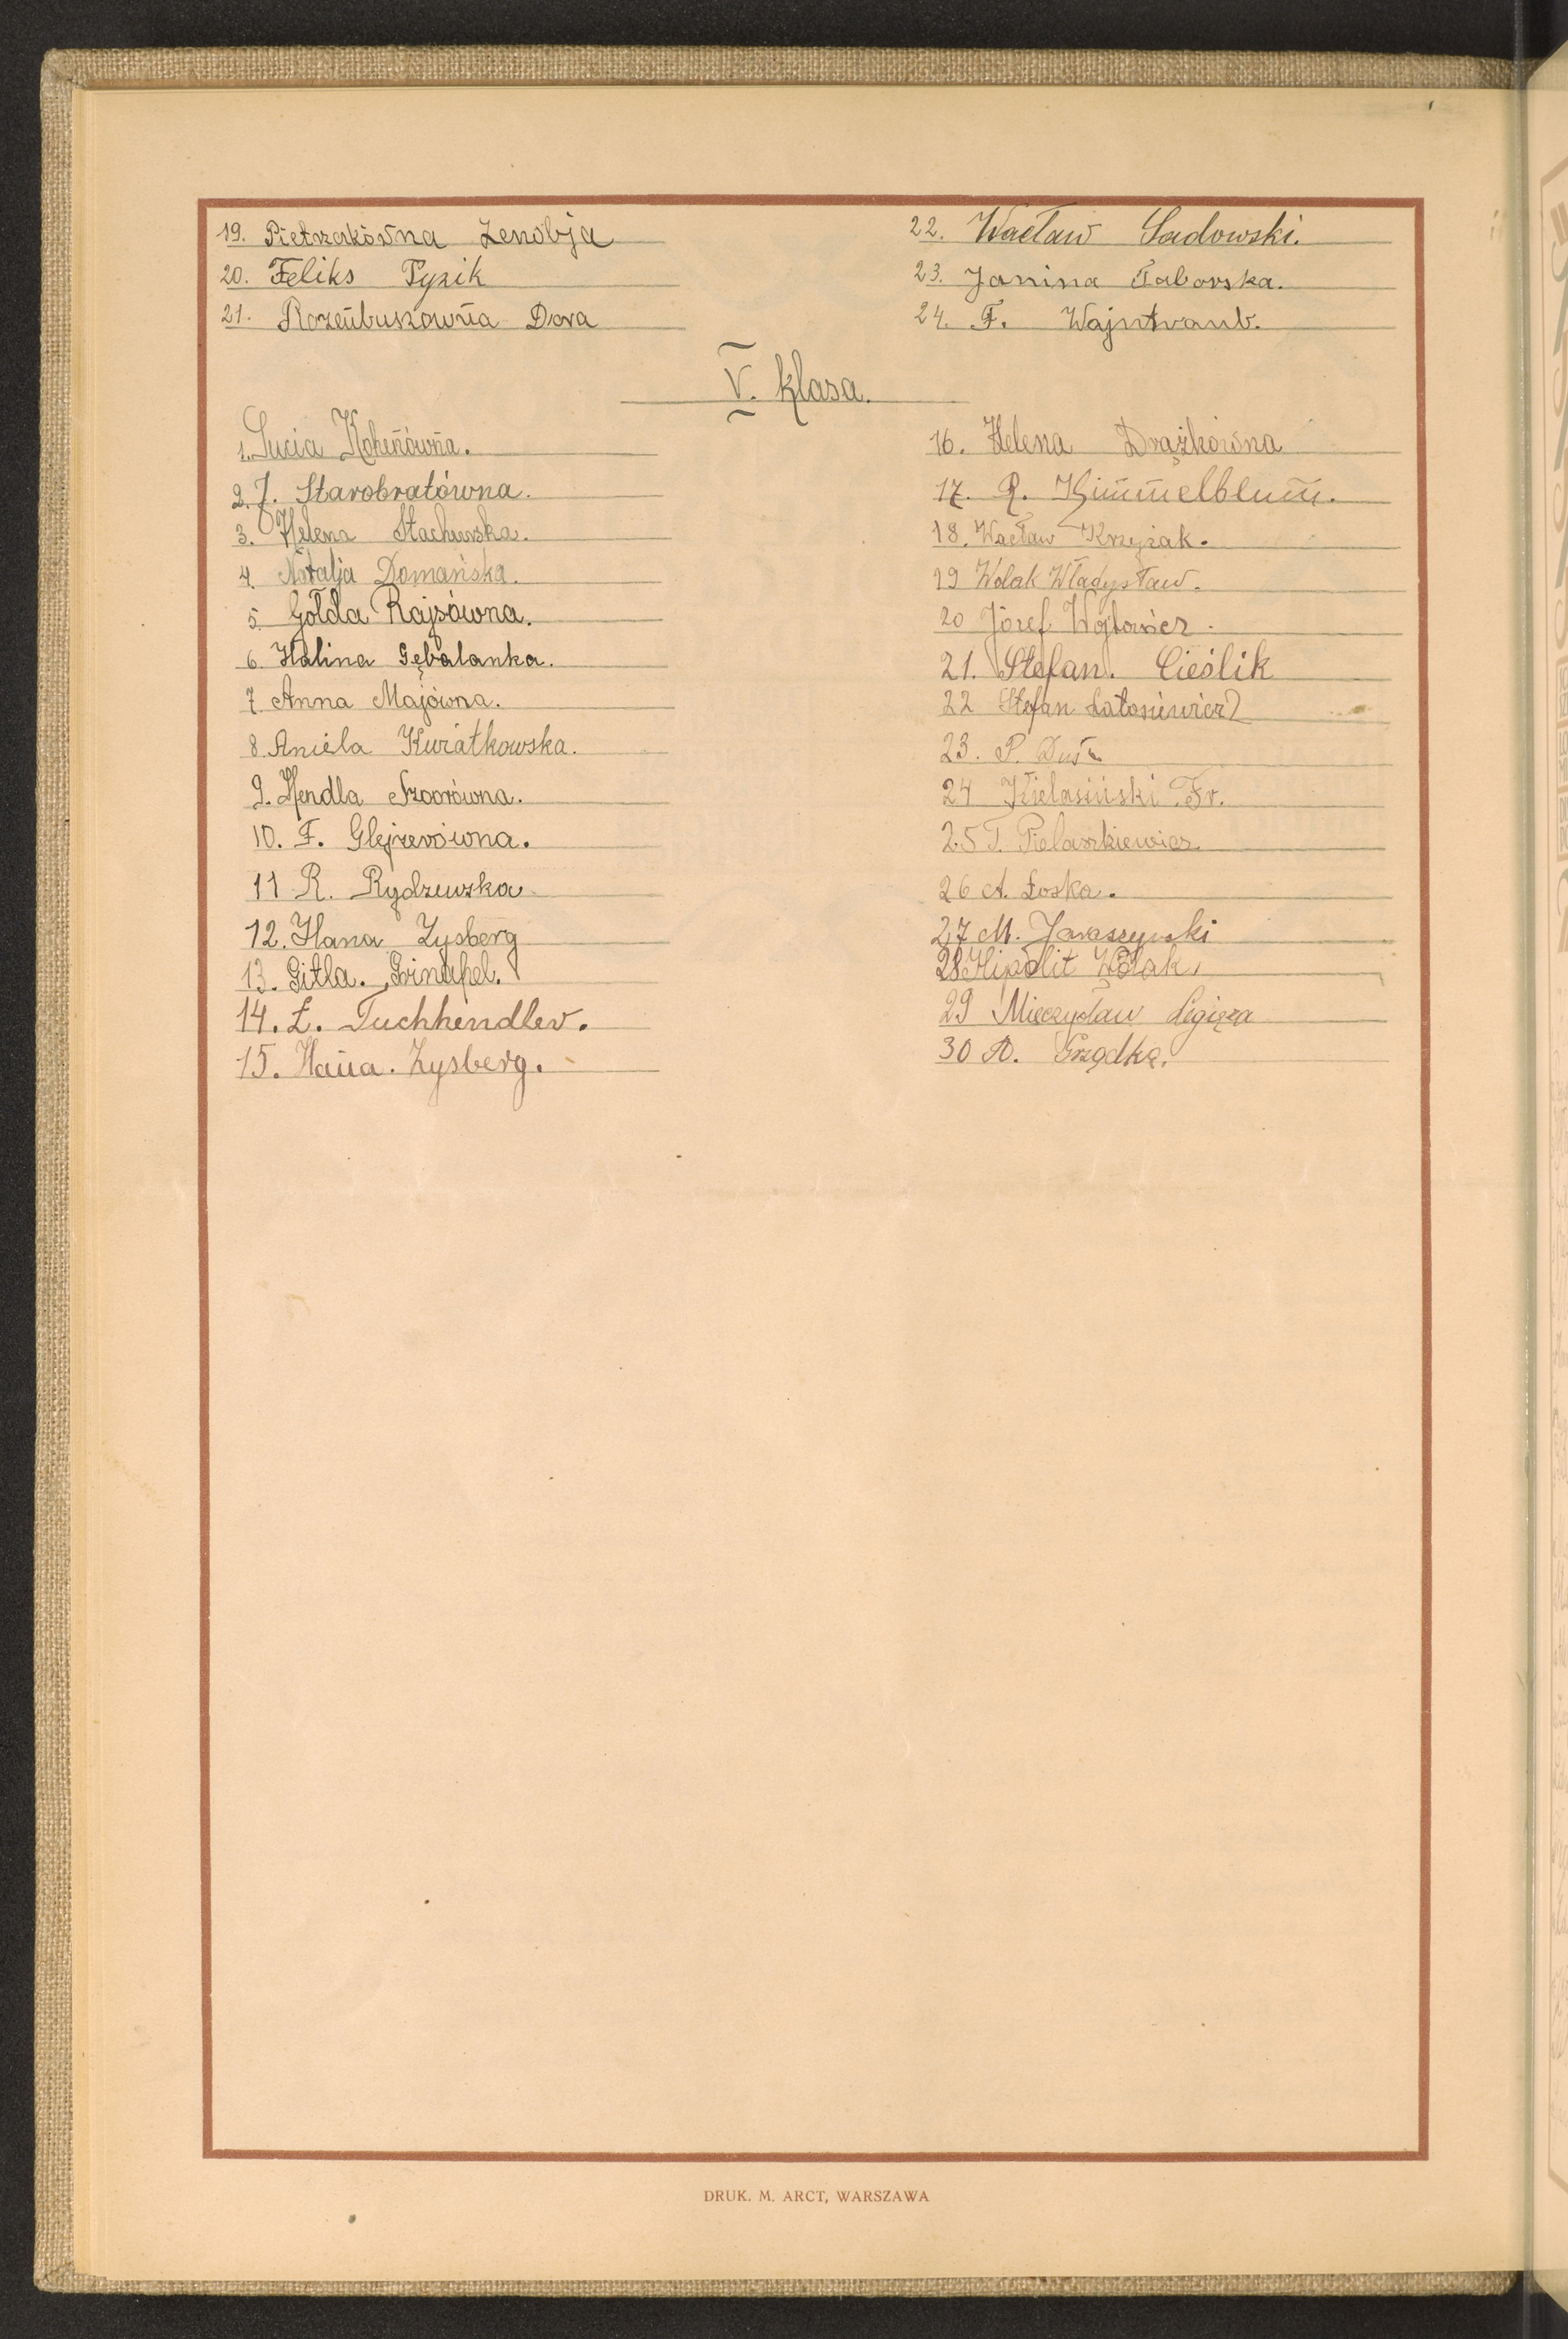 19. Pietrzakówna Zenobja
20. Feliks Pyzik
21. Rozenbuszowna Dora
22. Wacław Sadowski.
23. Janina Taborska.
24. F. Wajntraub.
V. klasa.
1. Lucia Kohenówna.
2. J. Starobratówna.
3. Helena Stachurska.
4. Natalja Domańska.
5. Gołda Rajsówna.
6. Halina Gębalanka.
7 Anna Majówna.
8. Aniela Kwiatkowska.
9. Hendla
10. F. Glejzerówna.
11 R. Rydzewska
12. Hana Zysberg
13. Gitla.
14. Ł. Tuchhendler.
15. Hana. Zysberg.
16. Helena Drążkówna
17. R. Himmelblum.
18. Wacław Krzyżak.
19 Wolak Władysław.
20 Józef Wójtowicz.
21. Stefan. Cieślik
22 Stefan Latosiewicz
23. P.
24 Kielasiński Fr.
25 T. Pielaszkiewicz.
26 A. Łoska.
27 M. Jaraszewski
28 Hipolit Wolak.
29 Mieczysław Ligięza
30 A. Grządka.
DRUK. M. ARCT, WARSZAWA